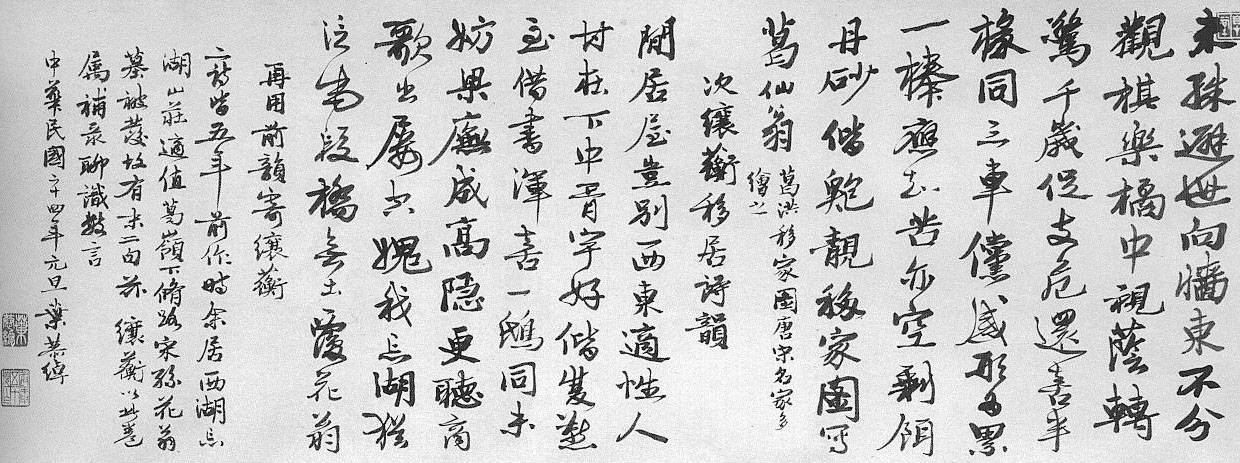 未殊避世向牆東不分
觀棋樂橘中視蔭轉
驚千歲促支危還喜半
椽同三車儻感形為累
一棒應知苦亦空剩領
丹砂偕鮑靚移家圖寫
葛仙翁 葛洪移家圖唐宋名家多
繪之
次纕蘅移居詩韻
閒居屋豈別西東適性人
在下中胥宇好偕雙燕
至借書渾喜一鴟同未
妨梁廡成高隱更聽商
歌出屢空愧我忘湖猶
泛段橋無土覆花翁
再用前韻寄纕蘅
二詩皆五年前作時余居西湖忘
湖山莊適值葛嶺下脩路宋孫花翁
墓被發故有末二句茲纕蘅以此卷
屬補录聊識數言
中華民國二十四年元旦葉恭綽